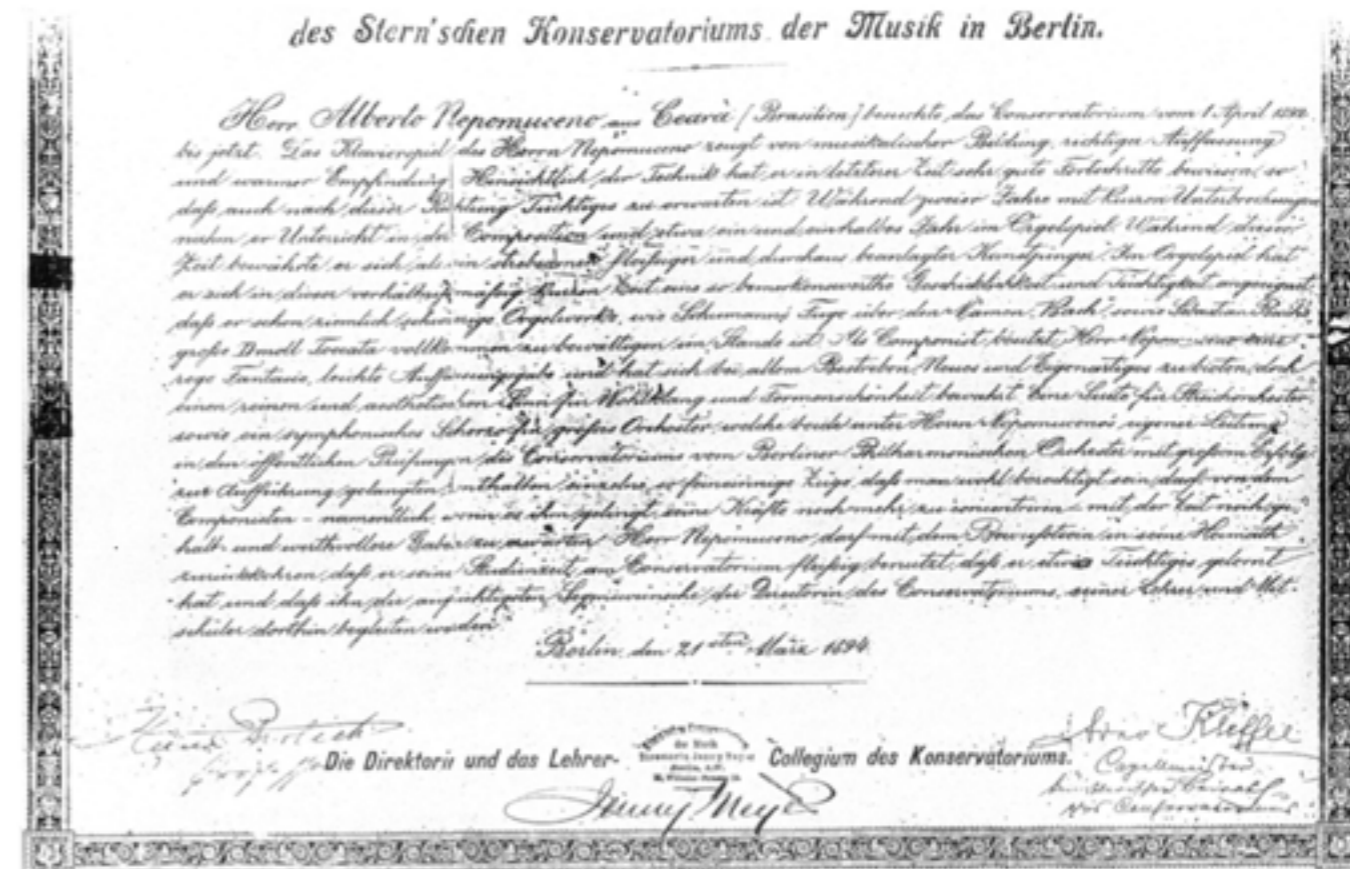 des Stern'schen Konservatoriums der Musik in Berlin.
Herr Alberto Nepomuceno aus Ceará (Brasilien) besuchte das Conservatorium vom 1 April
bis jetzt. Das Klavierspiel des Herrn Nepomuceno zeugt von musikalischer Bildung, richtiger Auffassung
und warmer Empfindung. Hinsichtlich der Technik hat er in letzterer Zeit sehr gute Fortschritte bewiesen, so
daß auch nach dieser Richtung Tüchtiges zu erwarten ist. Während zweier Jahre mit kurzen Unterbrechungen
nahm er Unterricht in der Composition und etwa ein und einhalbes Jahr im Orgelspiel. Während dieser
Zeit bewährte er sich als ein strebsamer, fleißiger und durchaus beanlagter Kunstjünger. Im Orgelspiel hat
er sich in dieser verhältnißmäßig kurzen Zeit eine so bemerkenswerthe Geschicklichkeit und Tüchtigkeit angeeignet,
daß er schon ziemlich schwierige Orgelwerke, wie Schumann's Fuge über den Namen Bach, sowie Sebastian Bach's
große Dmoll Toccata vollkommen zu bewältigen im Stande ist. Als Componist besitzt Herr Nepomuceno eine
rege Fantasie, leichte Auffassungsgabe und hat sich bei allem Bestreben Neues und Eigenartiges zu bieten, doch
einen reinen und aesthetischen Sinn für Wohlklang und Formenschönheit bewahrt. Eine Suite für Streichorchester
sowie ein symphonisches Scherzo für großes Orchester, welche beide unter Herrn Nepomuceno's eigener Leitung
in den öffentlichen Prüfungen des Conservatoriums vom Berliner Philharmonischen Orchester mit großem Erfolg
zur Aufführung gelangten, enthalten einzelne, so feinsinnige Züge, daß man wohl berechtigt sein darf, von dem
Componisten – namentlich wenn es ihm gelingt, seine Kräfte noch mehr zu concentriren – mit der Zeit noch ge-
halt- und werthvollere Gaben zu erwarten. Herr Nepomuceno darf mit dem Bewußtsein in seine Heimath
zurückkehren, daß er seine Studienzeit am Conservatorium fleißig benutzt, daß er etwas Tüchtiges gelernt
hat und daß ihn die aufrichtigsten Segenswünsche der Directorin des Conservatoriums, seiner Lehrer und Mit-
schüler dorthin begleiten werden.
Berlin, den 21 sten März 1894.
Die Direktorin und das Lehrer- Collegium des Konservatoriums.
Arno Kleffel
Capellmeister
Jenny Meyer